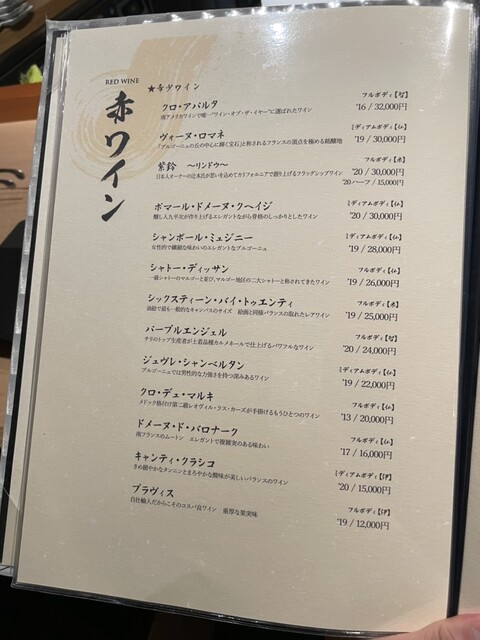 RED WINE
赤ワイン
★赤ワイン
クロ・アパルタ フルボディ【智】
南アメリカワインで唯一"ワイン・オブ・ザ・イヤー"に選ばれたワイン '16 / 32,000円
ヴォーヌ・ロマネ ミディアムボディ【仏】
「ブルゴーニュの丘の中心に輝く宝石」と称されるフランスの頂点を極める銘醸地 '19 / 30,000円
紫鈴 ～リンドウ～ フルボディ【米】
日本人オーナーの辻本氏が思いを込めてカリフォルニアで創り上げるフラッグシップワイン '20 / 30,000円
'20 ハーフ / 15,000円
ポマール・ドメーヌ・クヘイジ ミディアムボディ【仏】
醸し人九平次が作り上げるエレガントながら骨格のしっかりとしたワイン '20 / 30,000円
シャンボール・ミュジニー ミディアムボディ【仏】
女性的で繊細な味わいのエレガントなブルゴーニュ '19 / 28,000円
シャトー・ディッサン フルボディ【仏】
一級シャトーのマルゴーと並び、マルゴー地区の二大シャトーと称されてきたワイン '19 / 26,000円
シックスティーン・バイ・トゥエンティ フルボディ【米】
油絵で最も一般的なキャンバスのサイズ 絵画と同様バランスの取れたレアワイン '19 / 25,000円
パープルエンジェル フルボディ【智】
チリのトップ生産者が土着品種カルメネールで仕上げるパワフルなワイン '20 / 24,000円
ジュヴレ・シャンベルタン ミディアムボディ【仏】
ブルゴーニュでは男性的な力強さを持つ深みあるワイン '19 / 22,000円
クロ・デュ・マルキ フルボディ【仏】
メドック格付け第二級レオヴィル・ラス・カーズが手掛けるもうひとつのワイン '13 / 20,000円
ドメーヌ・ド・バロナーク フルボディ【仏】
南フランスのムートン エレガントで複雑実のある味わい '17 / 16,000円
キャンティ・クラシコ ミディアムボディ【伊】
きめ細やかなタンニンとまろやかな酸味が美しいバランスのワイン '20 / 15,000円
ブラヴィス フルボディ【伊】
自社輸入だからこそのコスパ良ワイン 重厚な果実味 '19 / 12,000円